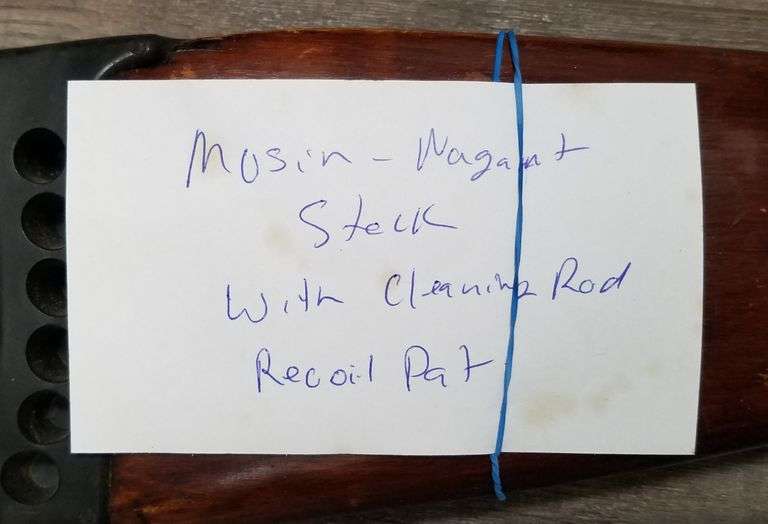 Mosin - Nagant
Stock
With Cleaning Rod
Recoil Pat